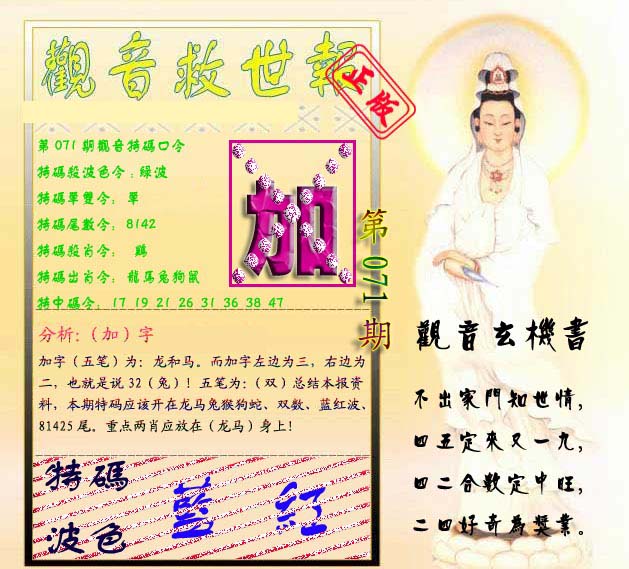 觀音救世報
正版
第071期觀音特碼口令
特碼殺波色令:綠波
特碼單雙令: 單
特碼尾數令: 8142
特碼殺肖令: 鷄
特碼出肖令: 龍馬兔狗鼠
特中碼令: 17 19 21 26 31 36 38 47
加
第071期
分析:(加)字
加字(五笔)为:龙和马。而加字左边为三,右边为
二,也就是说32(兔)!五笔为:(双)总结本报资
料,本期特码应该开在龙马兔猴狗蛇、双数、蓝红波、
81425尾。重点两肖应放在(龙马)身上!
特碼
波色
藍 紅
觀音玄機書
不出家門知世情,
四五定來又一九,
四二合數定中旺,
二四好奇為獎業。